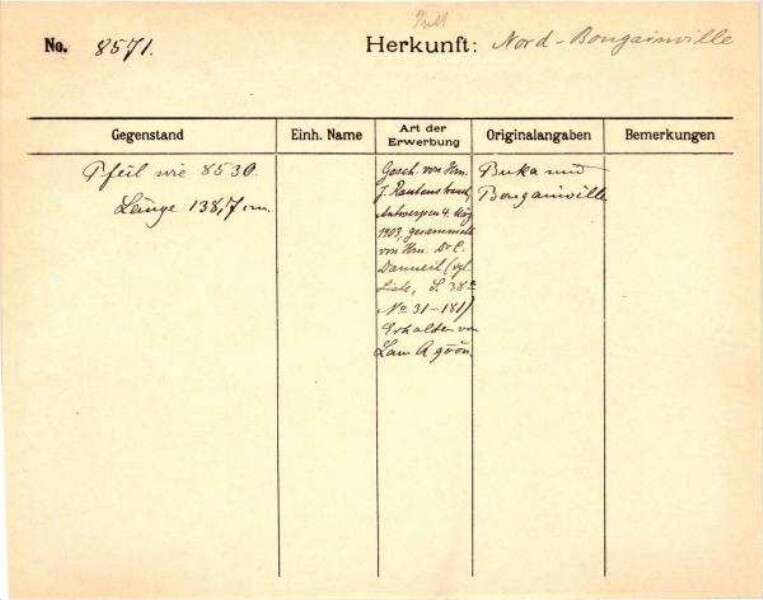 No. 8571.
Herkunft: Nord-Bougainville
Gegenstand
Einh. Name
Art der Erwerbung
Originalangaben
Bemerkungen
Pfeil wie 8530.
Länge 138,7 cm.
Gesch. von Hrn.
J. Rautenstrauch,
Antwerpen 4. März
1903, gesammelt
von Hrn. Dr C.
Danneil (vgl.
Liste, S. 38a
No 31-181)
Erhalten von
Buka und
Bougainville